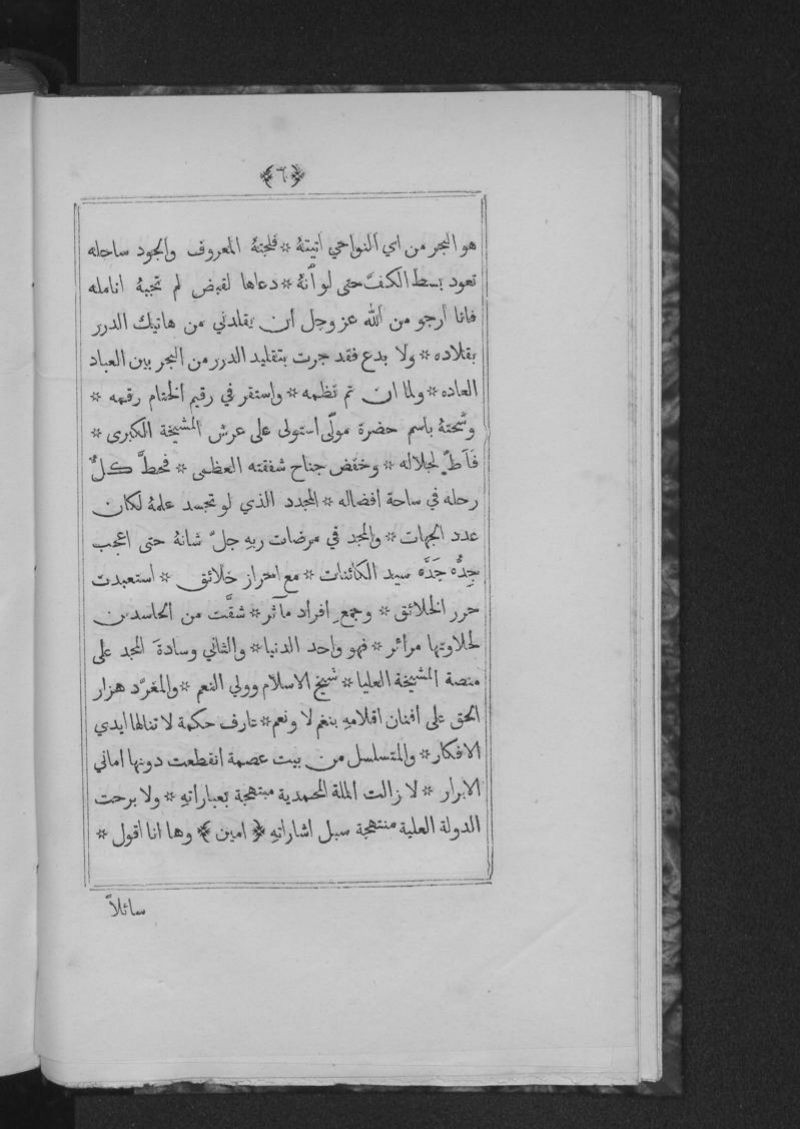 ﴿٦﴾
هو البحر من اي النواحي اتيتهُ * فلجتهُ المعروف والجود ساحله
تعود بسط الكفّ حتى لو أنّهُ * دعاها لقبض لم تجبهُ انامله
فانا أرجو من الله عز وجل أن يقلدني من هاتيك الدرر
بقلاده * ولا بدع فقد جرت بتقليد الدرر من البحر بين العباد
العاده * ولما ان تم نظمه * واستقر في رقيم الختام رقمه *
وشّحتهُ باسم حضرة مولًى أستولى على عرش المشيخة الكبرى *
فَأَطَّ لجلاله * وخفض جناح شفقته العظمى * فحطَّ كلٌّ
رحله في ساحة افضاله * المجدد الذي لو تجسد علمهُ لكان
عدد الجهات * والمجد في مرضات ربهِ جلّ شانهُ حتى اعجب
جِدُّهُ جَدَّه سيد الكائنات * مع احراز خلائق * استعبدت
حرر الخلائق * وجمع افراد مآثر * شقَّت من الحاسدين
لحلاوتها مرائر * فهو واحد الدنيا * والثاني وسادةَ المجد على
منصة المشيخة العليا * شيخ الاسلام وولي النعم * والمغرّد هزار
الحق على افنان اقلامهِ بنغم لا ونعم * عارف حكمة لا تنالها ايدي
الافكار * والمتسلسل من بيت عصمة انقطعت دونها اماني
الابرار * لا زالت الملة المحمدية مبتهجة بعباراتهِ * ولا برحت
الدولة العلية منتهجة سبل اشاراتهِ ﴿ امين ﴾ وها انا اقول *
سائلاً